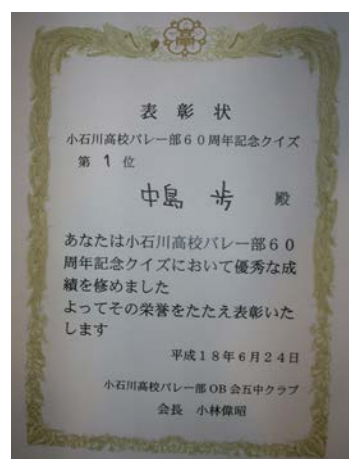 表彰状
小石川高校バレー部60周年記念クイズ
第 1 位
中島 歩 殿
あなたは小石川高校バレー部60
周年記念クイズにおいて優秀な成
績を修めました
よってその栄誉をたたえ表彰いた
します
平成18年6月24日
小石川高校バレー部OB会五中クラブ
会長 小林偉昭